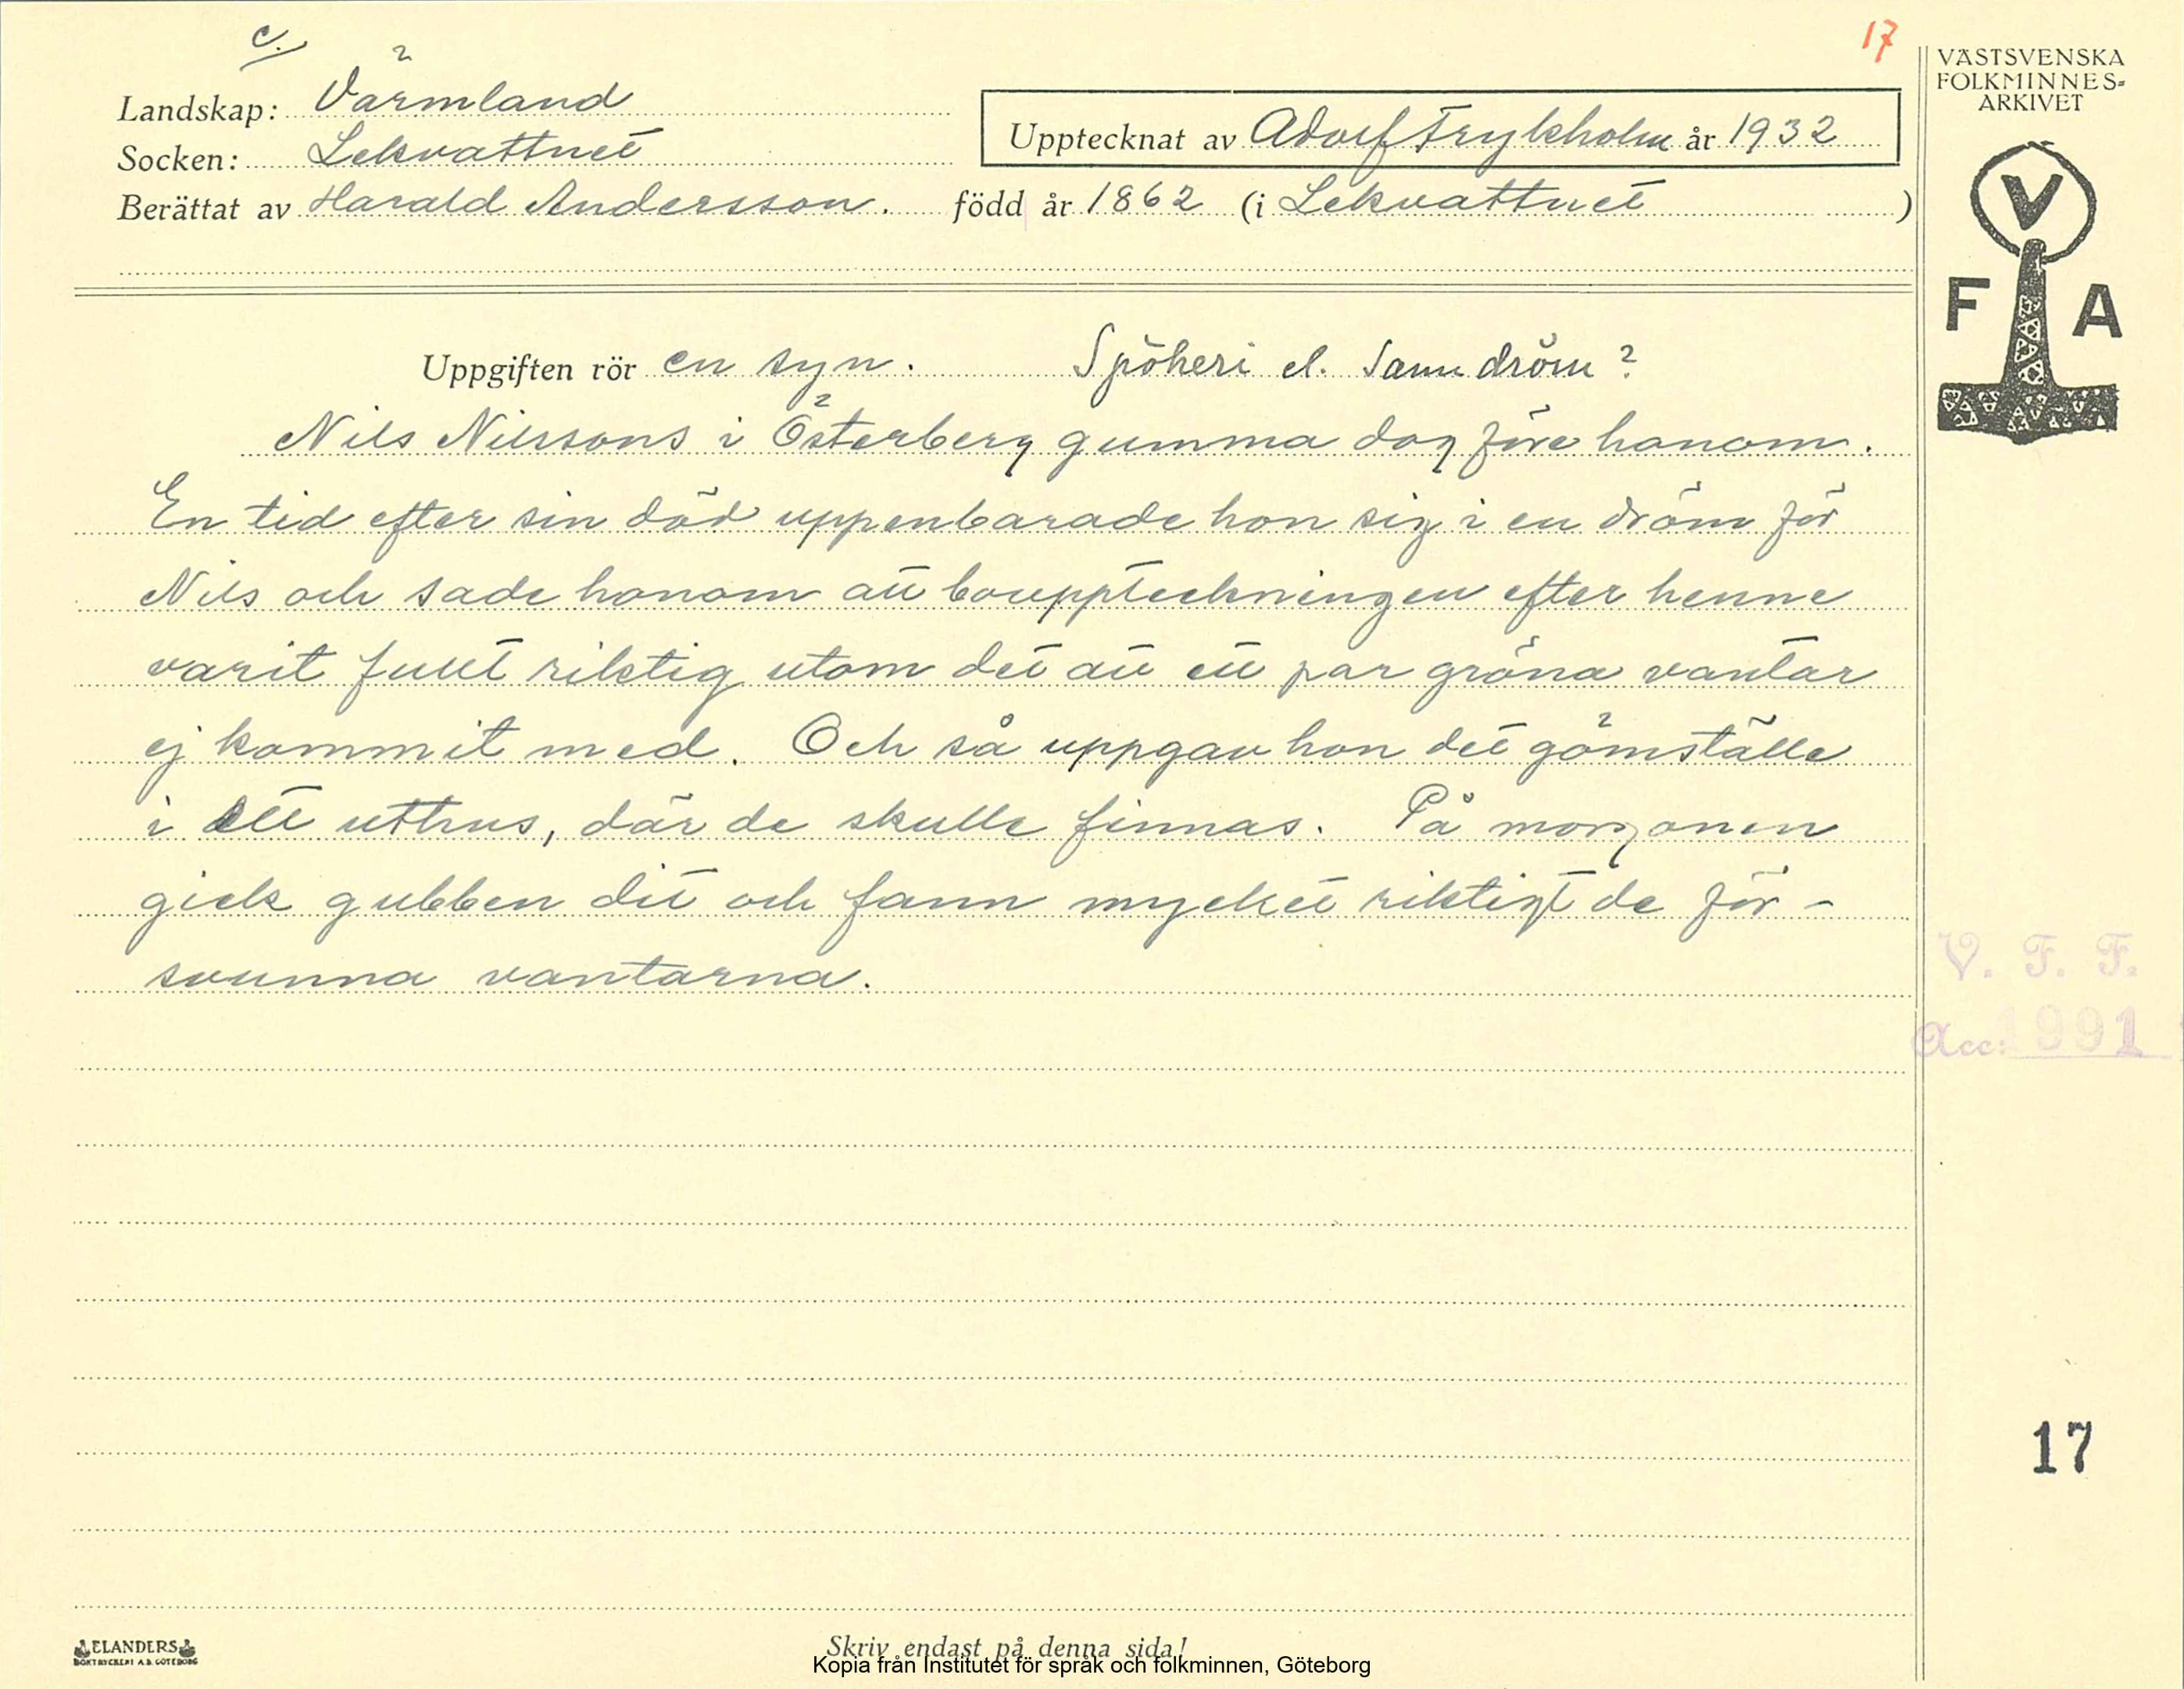 c.
17
Landskap: Värmland
Socken: Lekvattnet
Berättat av Harald Andersson.
Upptecknat av Adolf Frykholm år 1932
född år 1862 (i Lekvattnet )
VÄSTSVENSKA
FOLKMINNES-
ARKIVET
V
F A
Uppgiften rör en syn. Spökeri el. Sann dröm?
Nils Nilssons i Österberg gumma dog före honom.
En tid efter sin död uppenbarade hon sig i en dröm för
Nils och sade honom att bouppteckningen efter henne
varit fullt riktig utom det att ett par gröna vantar
ej kommit med. Och så uppgav hon det gömställe
i ett uthus, där de skulle finnas. På morgonen
gick gubben dit och fann mycket riktigt de för-
svunna vantarna.
V. F. F.
Acc: 1991
17
ELANDERS
BOKTRYCKERI A.B. GÖTEBORG
Skriv endast på denna sida!
Kopia från Institutet för språk och folkminnen, Göteborg